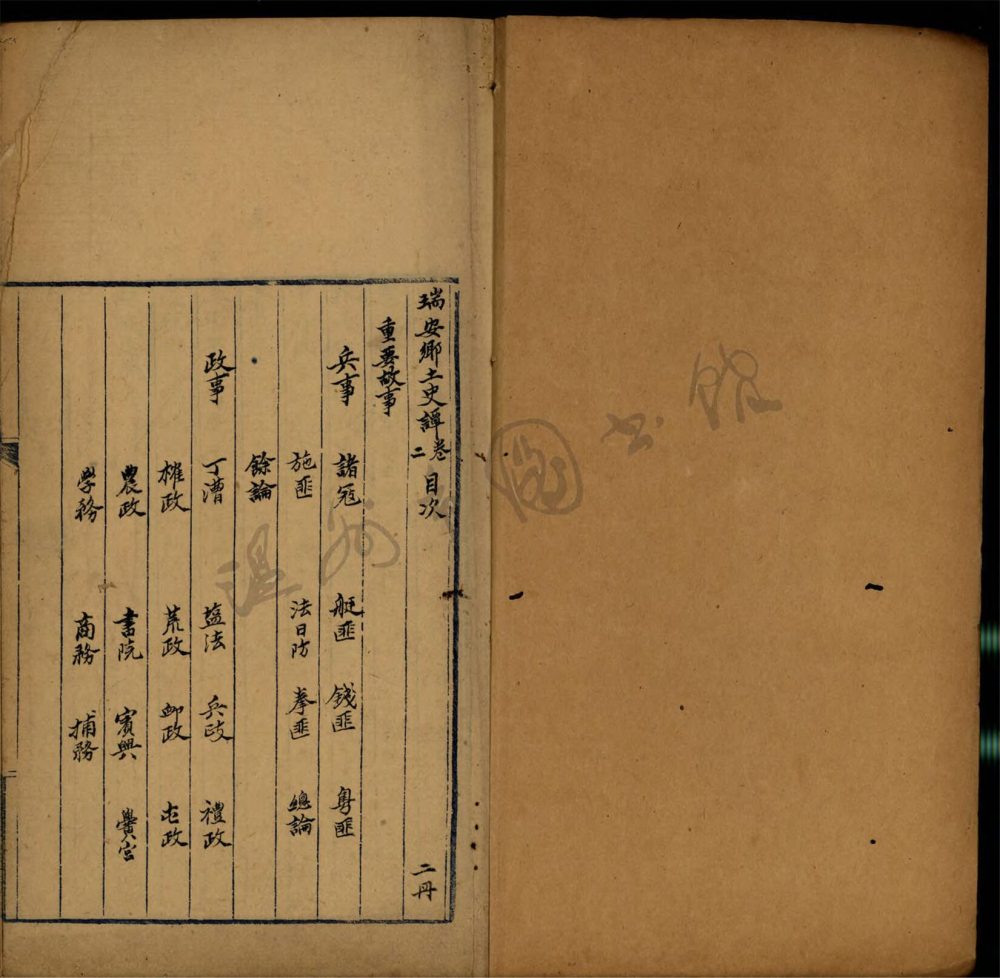 瑞安鄉土史譚卷二 目次 二冊
重要故事
兵事 諸寇 艇匪 錢匪 粵匪
施匪 法日防 拳匪 總論
餘論
政事 丁漕 塩法 兵政 禮政
榷政 荒政 卹政 屯政
農政 書院 賓興 黌宮
學務 商務 捕務
溫州圖書館